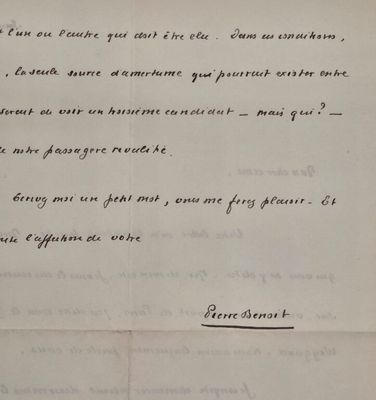 l'un ou l'autre qui doit être élu. Dans ces conditions,
, la seule source d'amertume qui pourrait exister entre
serait de voir un troisième candidat — mais qui ? —
notre passagère rivalité.
Envoyez moi un petit mot, vous me ferez plaisir. Et
l'affection de votre
Pierre Benoit